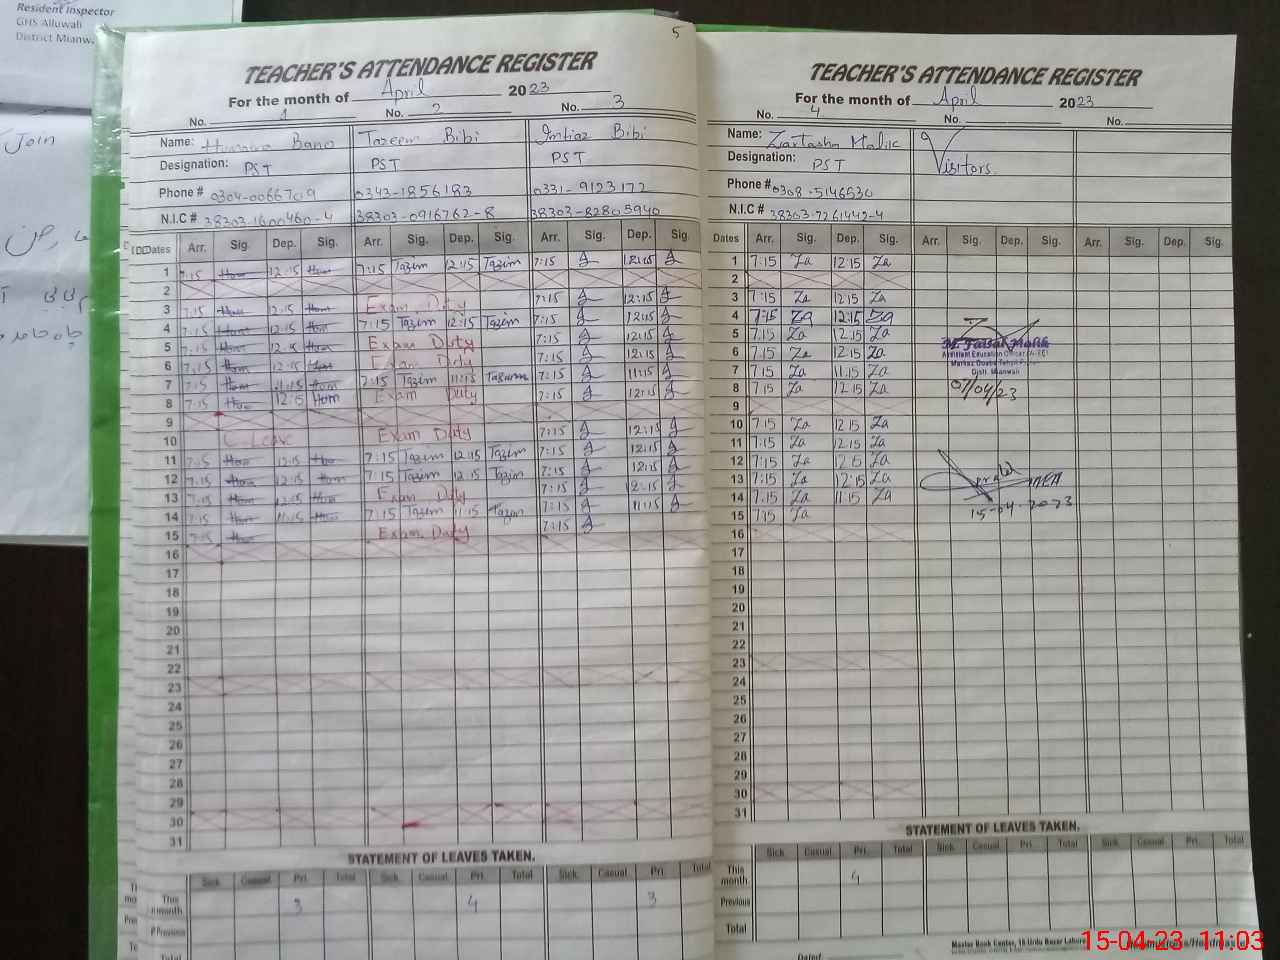 Resident Inspector
GHS Alluwali
District Mianw
Join
5
TEACHER'S ATTENDANCE REGISTER
For the month of April 2023
No. 1 No. 2 No. 3
Name: Humaira Bano Tazeem Bibi Imtiaz Bibi
Designation: PST PST PST
Phone # 0304-0066709 0343-1856183 0331-9123172
N.I.C # 38303-1600460-4 38303-0916762-8 38303-82805940
Dates Arr. Sig. Dep. Sig. Arr. Sig. Dep. Sig. Arr. Sig. Dep. Sig.
1 7:15 Hum 12:15 Hum 7:15 Tazim 12:15 Tazim 7:15 12:15
2
3 7:15 Hum 12:15 Hum Exam Duty 7:15 12:15
4 7:15 Hum 12:15 Hum 7:15 Tazim 12:15 Tazim 7:15 12:15
5 7:15 Hum 12:15 Hum Exam Duty 7:15 12:15
6 7:15 Hum 12:15 Hum Exam Duty 7:15 12:15
7 7:15 Hum 11:15 Hum 7:15 Tazim 11:15 Tazim 7:15 11:15
8 7:15 Hum 12:15 Hum Exam Duty 7:15 12:15
9
10 C-Leave Exam Duty 7:15 12:15
11 7:15 Hum 12:15 Hum 7:15 Tazim 12:15 Tazim 7:15 12:15
12 7:15 Hum 12:15 Hum 7:15 Tazim 12:15 Tazim 7:15 12:15
13 7:15 Hum 12:15 Hum Exam Duty 7:15 12:15
14 7:15 Hum 11:15 Hum 7:15 Tazim 11:15 Tazim 7:15 11:15
15 7:15 Hum Exam Duty 7:15
16
17
18
19
20
21
22
23
24
25
26
27
28
29
30
31
STATEMENT OF LEAVES TAKEN.
Sick Casual Pri. Total Sick. Casual. Pri. Total Sick. Casual. Pri. Total
This month 3 4 3
Previous
Total
TEACHER'S ATTENDANCE REGISTER
For the month of April 2023
No. 4 No. No.
Name: Zartasha Malik Visitors.
Designation: PST
Phone # 0308-5146530
N.I.C # 38303-7261442-4
Dates Arr. Sig. Dep. Sig. Arr. Sig. Dep. Sig. Arr. Sig. Dep. Sig.
1 7:15 Za 12:15 Za
2
3 7:15 Za 12:15 Za
4 7:15 Za 12:15 Za
5 7:15 Za 12:15 Za
6 7:15 Za 12:15 Za
7 7:15 Za 11:15 Za
8 7:15 Za 12:15 Za
9
10 7:15 Za 12:15 Za
11 7:15 Za 12:15 Za
12 7:15 Za 12:15 Za
13 7:15 Za 12:15 Za
14 7:15 Za 11:15 Za
15 7:15 Za
16
17
18
19
20
21
22
23
24
25
26
27
28
29
30
31
M. Faisal Malik
Assistant Education Officer
Distt. Mianwali
07/04/23
15-04-2023
STATEMENT OF LEAVES TAKEN.
Sick. Casual. Pri. Total Sick. Casual. Pri. Total Sick. Casual. Pri. Total
This month 4
Previous
Total
Master Book Center, 18-Urdu Bazar Lahore
Dated
15-04-23 11:03